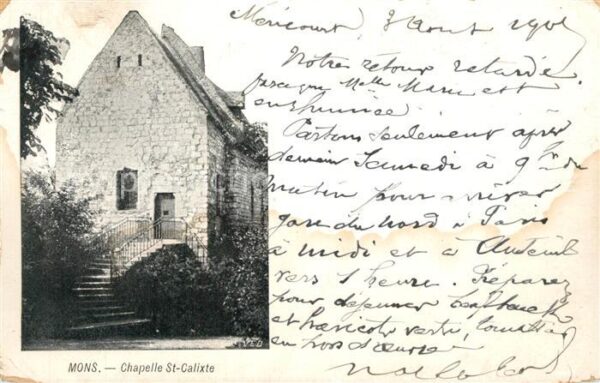 Méricourt, 3 Août 190
Notre retour retardé
parceque Melle Marie est
enrhumée.
Partons seulement après
demain Samedi à 9h du
matin pour arriver
gare du nord à Paris
à midi et à Auteuil
vers 1 heure. Préparez
pour déjeuner
et haricots verts, tomates
en hors d'œuvre
MONS. — Chapelle St-Calixte